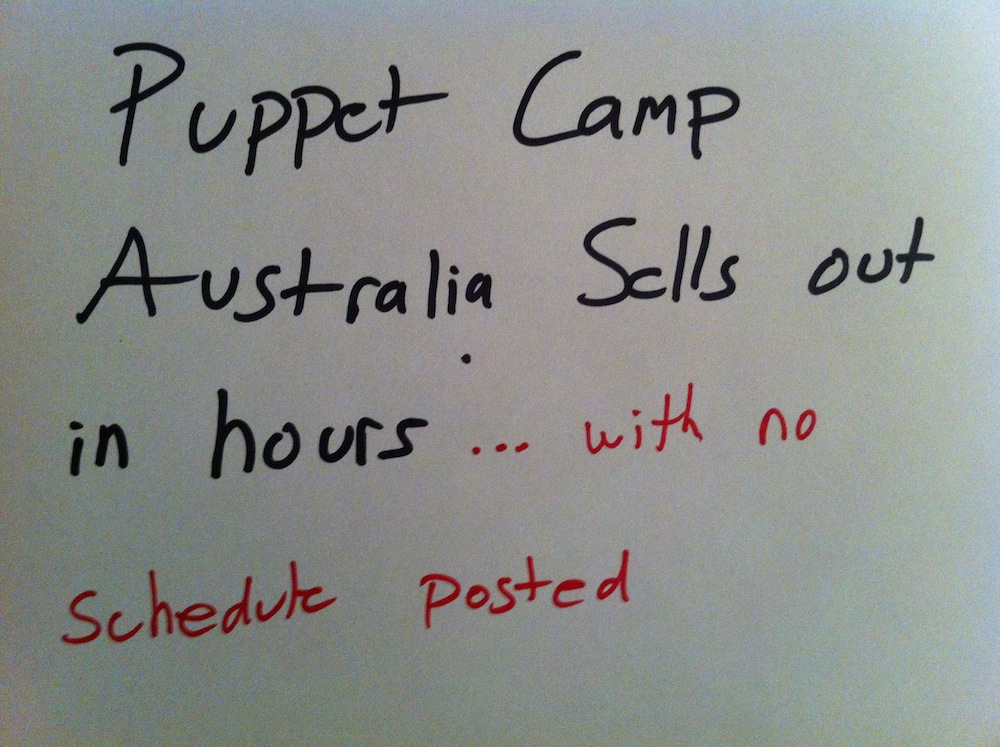 Puppet Camp
Australia Sells out
in hours ... with no
Schedule posted